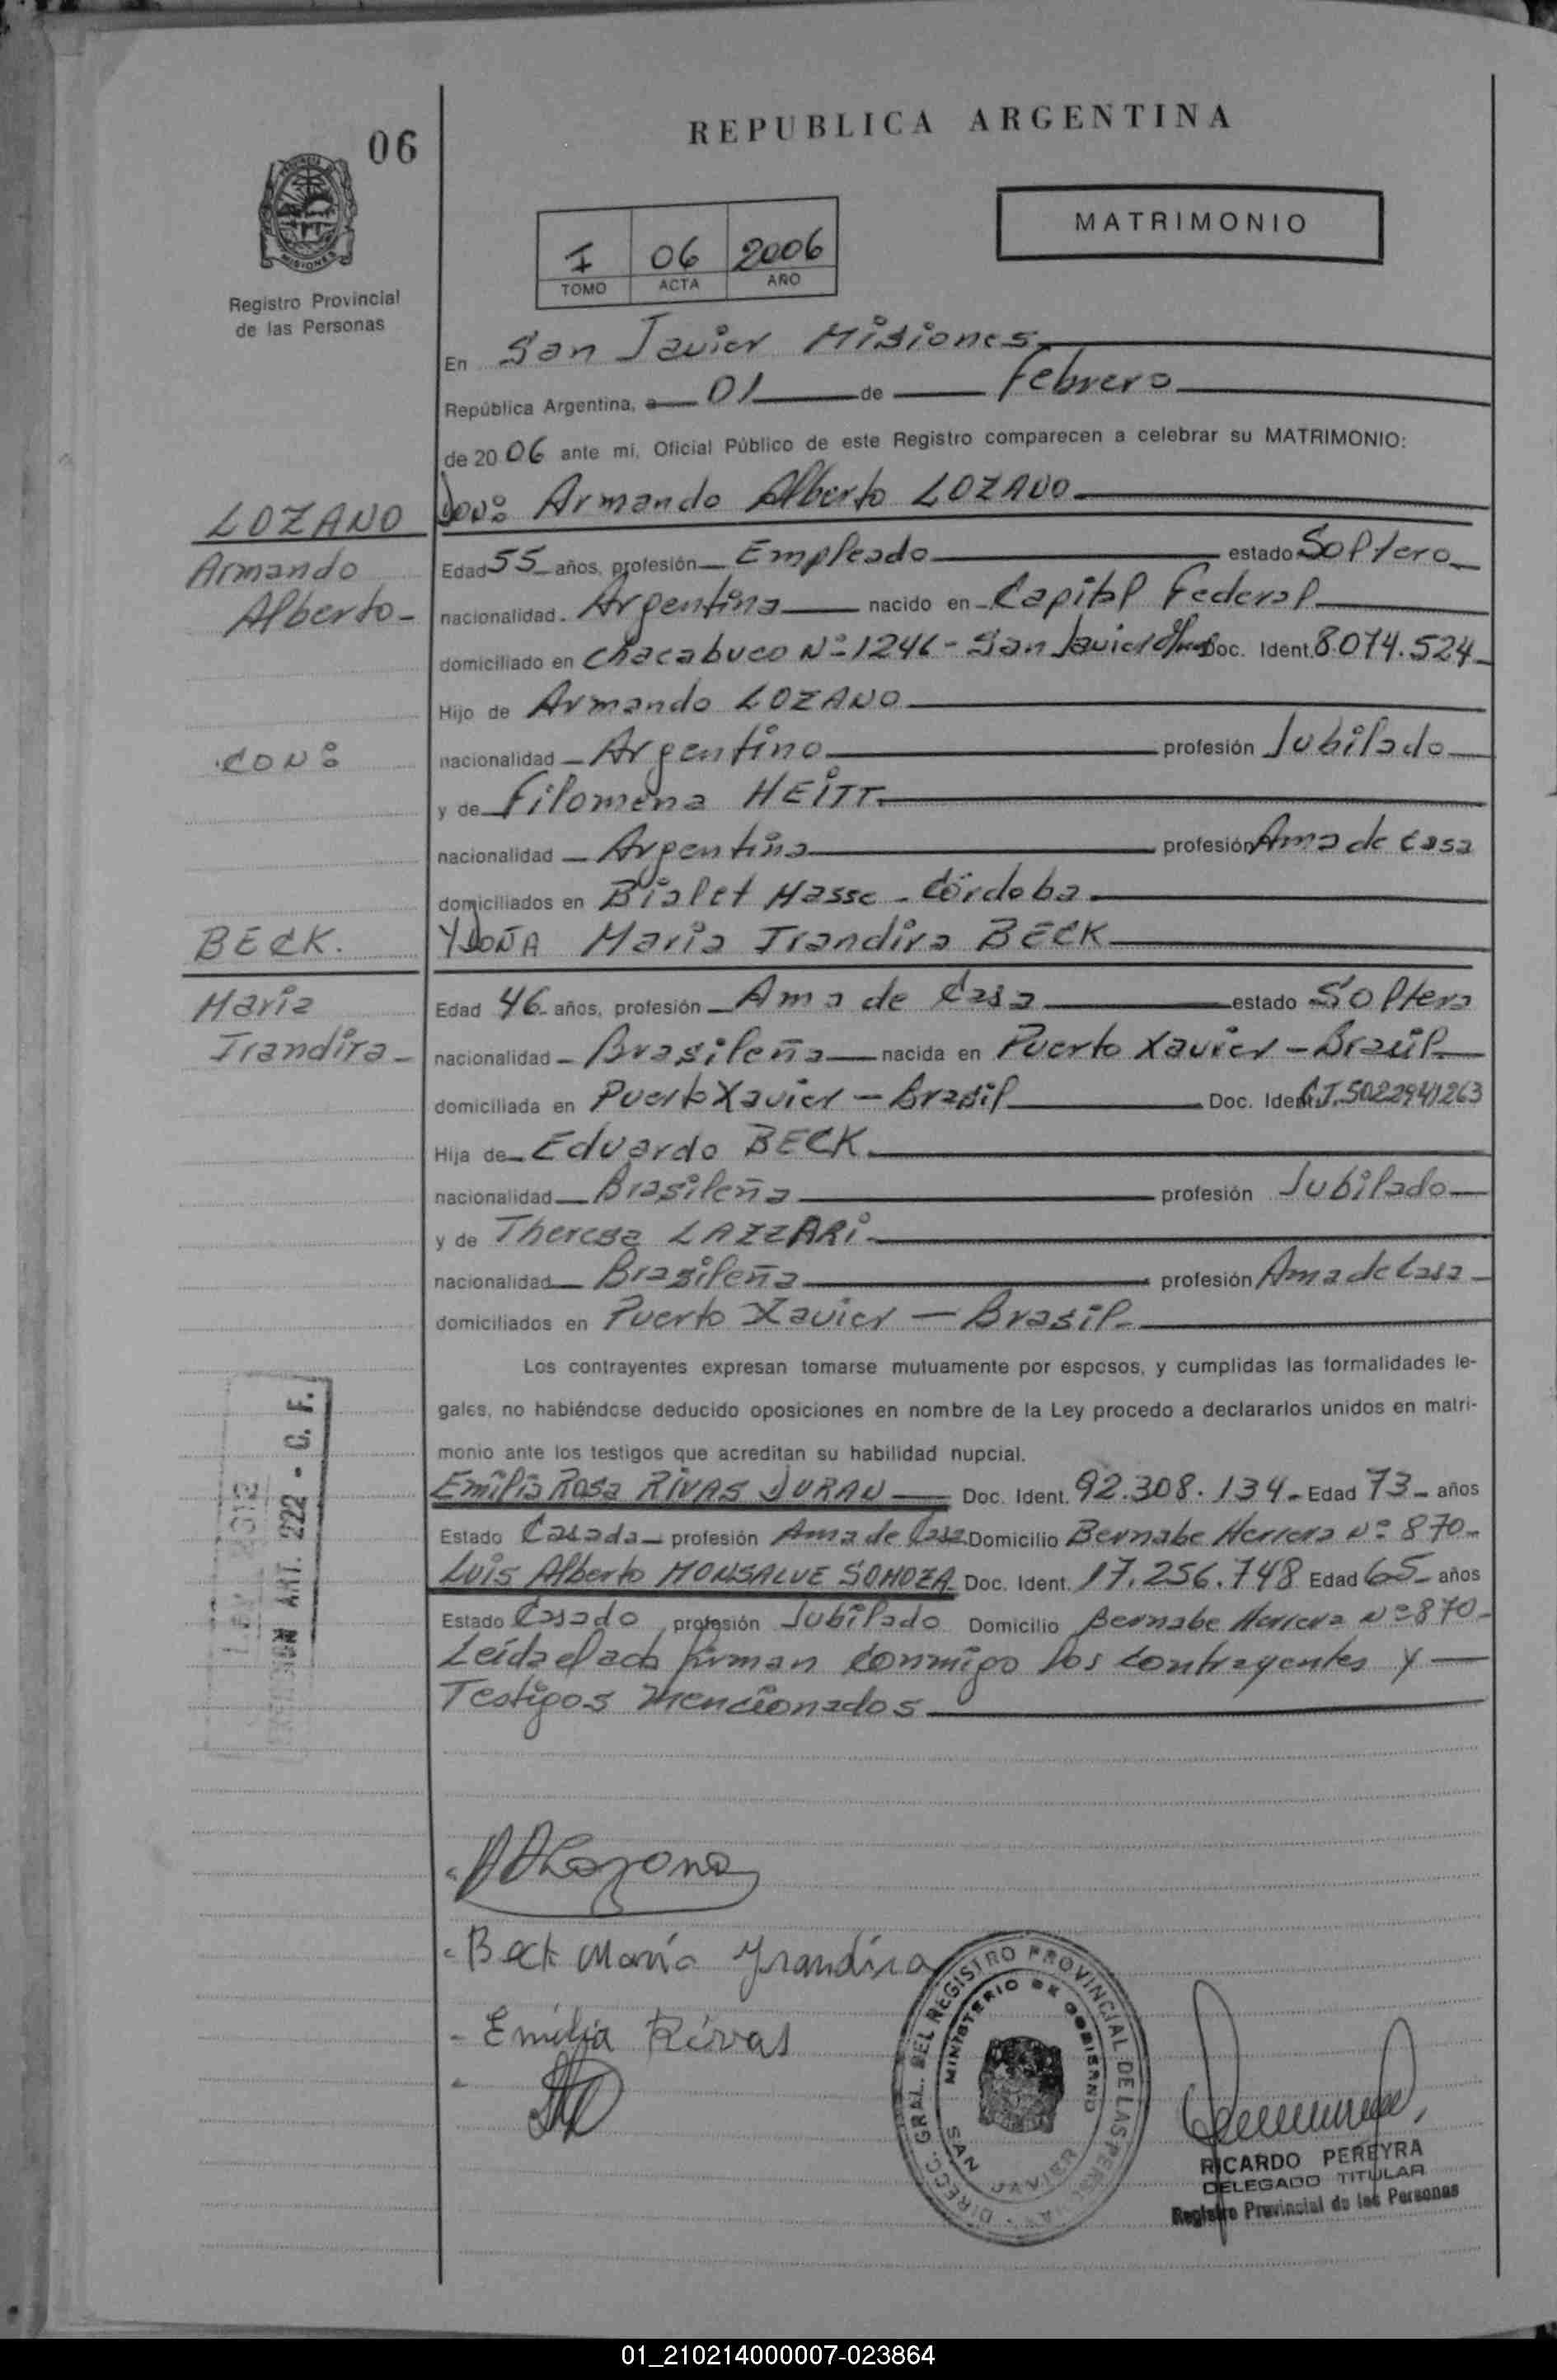 REPUBLICA ARGENTINA
06
MATRIMONIO
I 06 2006
TOMO ACTA AÑO
PROVINCIA DE
MISIONES
Registro Provincial
de las Personas
En San Javier Misiones
República Argentina, a 01 de Febrero
de 2006 ante mi, Oficial Público de este Registro comparecen a celebrar su MATRIMONIO:
LOZANO
Armando
Alberto-
DON: Armando Alberto LOZANO
Edad 55 años, profesión Empleado estado Soltero
nacionalidad Argentina nacido en Capital Federal
domiciliado en Chacabuco Nº 1246 - San Javier Doc. Ident. 8.074.524
Hijo de Armando LOZANO
CON:
nacionalidad Argentino profesión Jubilado
y de Filomena HEITT
nacionalidad Argentina profesión Ama de Casa
domiciliados en Bialet Masse - Córdoba
BECK.
Maria
Irandira-
Y DOÑA Maria Irandira BECK
Edad 46 años, profesión Ama de Casa estado Soltera
nacionalidad Brasileña nacida en Puerto Xavier - Brasil
domiciliada en Puerto Xavier - Brasil Doc. Ident. C.I. 5022941263
Hija de Eduardo BECK
nacionalidad Brasileña profesión Jubilado
y de Theresa LAZZARI
nacionalidad Brasileña profesión Ama de Casa
domiciliados en Puerto Xavier - Brasil
Los contrayentes expresan tomarse mutuamente por esposos, y cumplidas las formalidades le-
gales, no habiéndose deducido oposiciones en nombre de la Ley procedo a declararlos unidos en matri-
monio ante los testigos que acreditan su habilidad nupcial.
Emilia Rosa RIVAS DURAN Doc. Ident. 92.308.134 Edad 73 años
Estado Casada profesión Ama de Casa Domicilio Bernabe Herrera Nº 870
Luis Alberto MONSALVE SOMOZA Doc. Ident. 17.256.748 Edad 65 años
Estado Casado profesión Jubilado Domicilio Bernabe Herrera Nº 870
Leída el acta firman conmigo los contrayentes y
Testigos mencionados
ART. 222 - C. F.
AALozano
Beck Maria Irandira
Emilia Rivas
DIRECC. GRAL. DEL REGISTRO PROVINCIAL DE LAS PERSONAS
MINISTERIO DE GOBIERNO
SAN JAVIER
RICARDO PEREYRA
DELEGADO TITULAR
Registro Provincial de las Personas
01_210214000007-023864